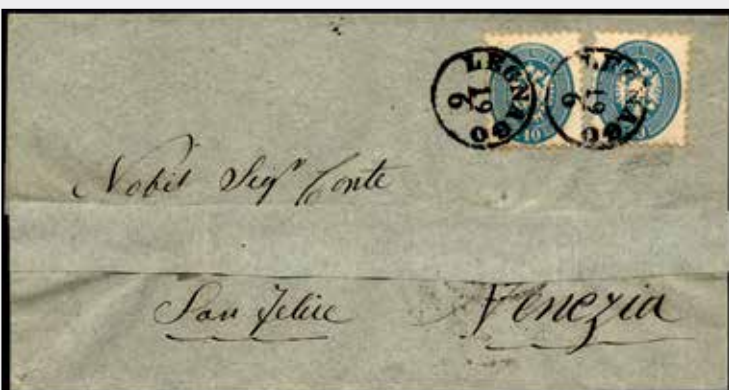 LEGNAGO
19
6
LEGNAGO
19
6
10
Nobil Sigr Conte
San Felice
Venezia